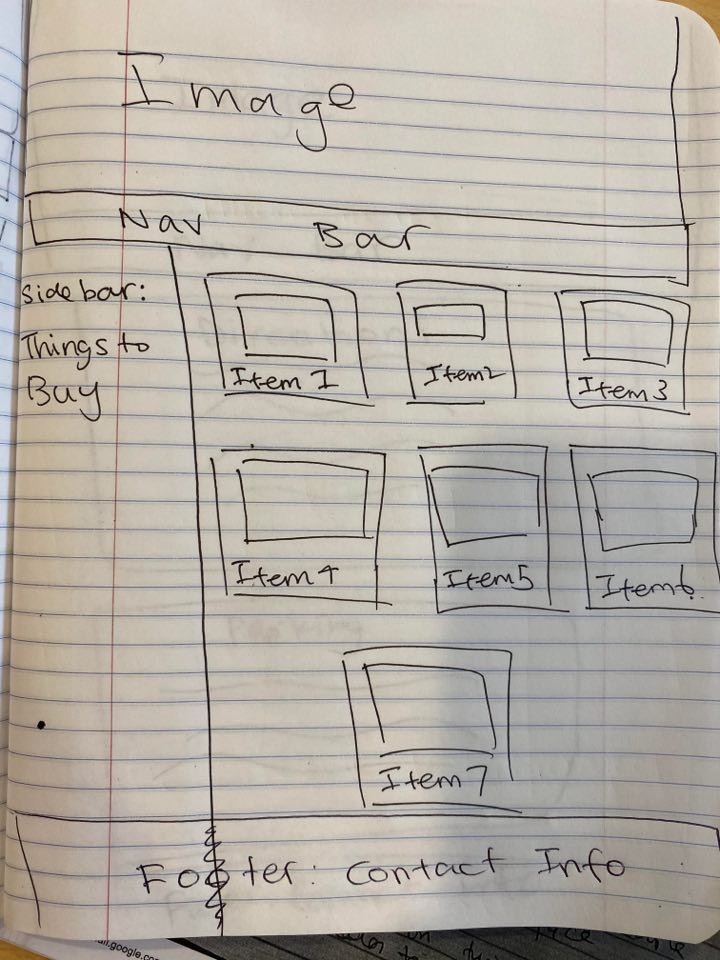 Image
Nav Bar
Sidebar:
Things to
Buy
Item 1
Item 2
Item 3
Item 4
Item 5
Item 6
Item 7
Footer: Contact Info
ail.google.co